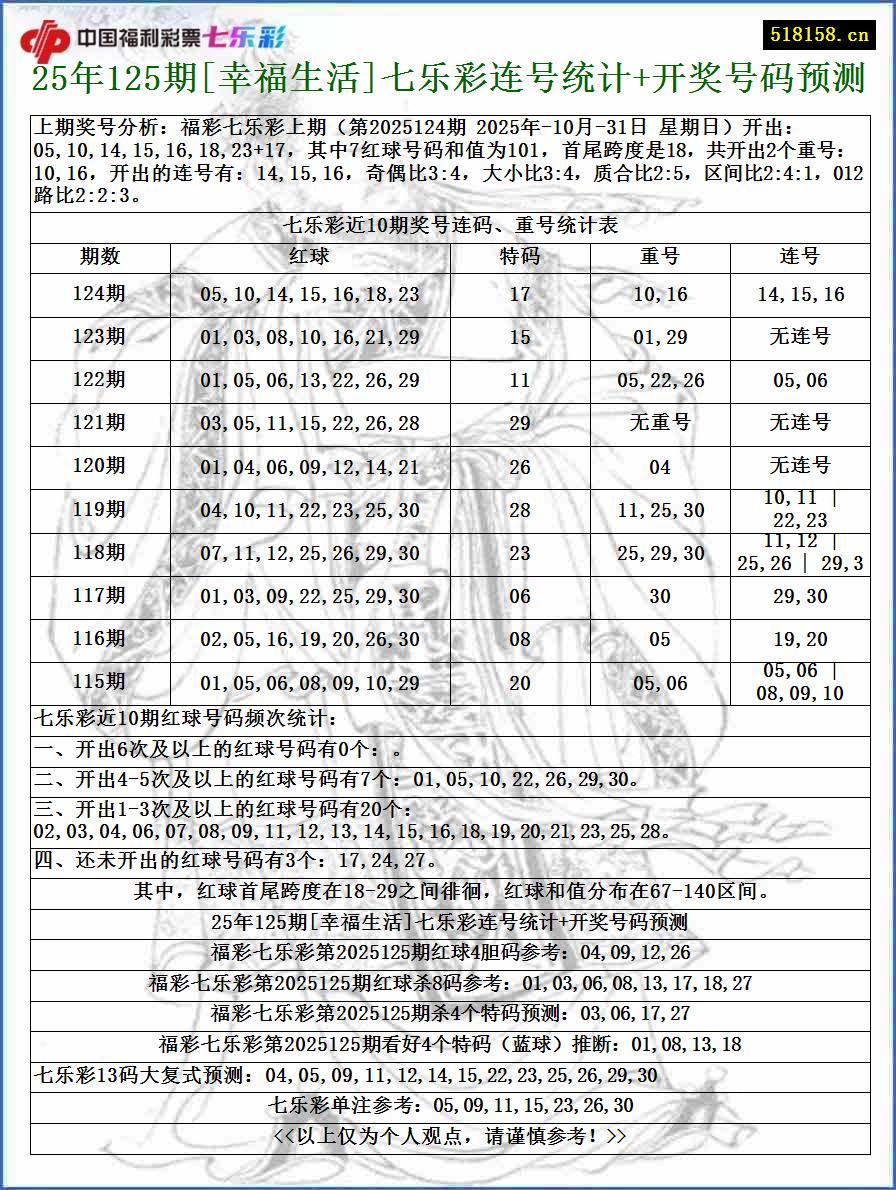 中国福利彩票七乐彩
518158.cn
25年125期[幸福生活]七乐彩连号统计+开奖号码预测
上期奖号分析：福彩七乐彩上期（第2025124期 2025年-10月-31日 星期日）开出：
05,10,14,15,16,18,23+17，其中7红球号码和值为101，首尾跨度是18，共开出2个重号：
10,16，开出的连号有：14,15,16，奇偶比3:4，大小比3:4，质合比2:5，区间比2:4:1，012
路比2:2:3。
七乐彩近10期奖号连码、重号统计表
期数 红球 特码 重号 连号
124期 05,10,14,15,16,18,23 17 10,16 14,15,16
123期 01,03,08,10,16,21,29 15 01,29 无连号
122期 01,05,06,13,22,26,29 11 05,22,26 05,06
121期 03,05,11,15,22,26,28 29 无重号 无连号
120期 01,04,06,09,12,14,21 26 04 无连号
119期 04,10,11,22,23,25,30 28 11,25,30 10,11 |
22,23
118期 07,11,12,25,26,29,30 23 25,29,30 11,12 |
25,26 | 29,3
117期 01,03,09,22,25,29,30 06 30 29,30
116期 02,05,16,19,20,26,30 08 05 19,20
115期 01,05,06,08,09,10,29 20 05,06 05,06 |
08,09,10
七乐彩近10期红球号码频次统计：
一、开出6次及以上的红球号码有0个：。
二、开出4-5次及以上的红球号码有7个：01,05,10,22,26,29,30。
三、开出1-3次及以上的红球号码有20个：
02,03,04,06,07,08,09,11,12,13,14,15,16,18,19,20,21,23,25,28。
四、还未开出的红球号码有3个：17,24,27。
其中，红球首尾跨度在18-29之间徘徊，红球和值分布在67-140区间。
25年125期[幸福生活]七乐彩连号统计+开奖号码预测
福彩七乐彩第2025125期红球4胆码参考：04,09,12,26
福彩七乐彩第2025125期红球杀8码参考：01,03,06,08,13,17,18,27
福彩七乐彩第2025125期杀4个特码预测：03,06,17,27
福彩七乐彩第2025125期看好4个特码（蓝球）推断：01,08,13,18
七乐彩13码大复式预测：04,05,09,11,12,14,15,22,23,25,26,29,30
七乐彩单注参考：05,09,11,15,23,26,30
<<以上仅为个人观点，请谨慎参考！>>